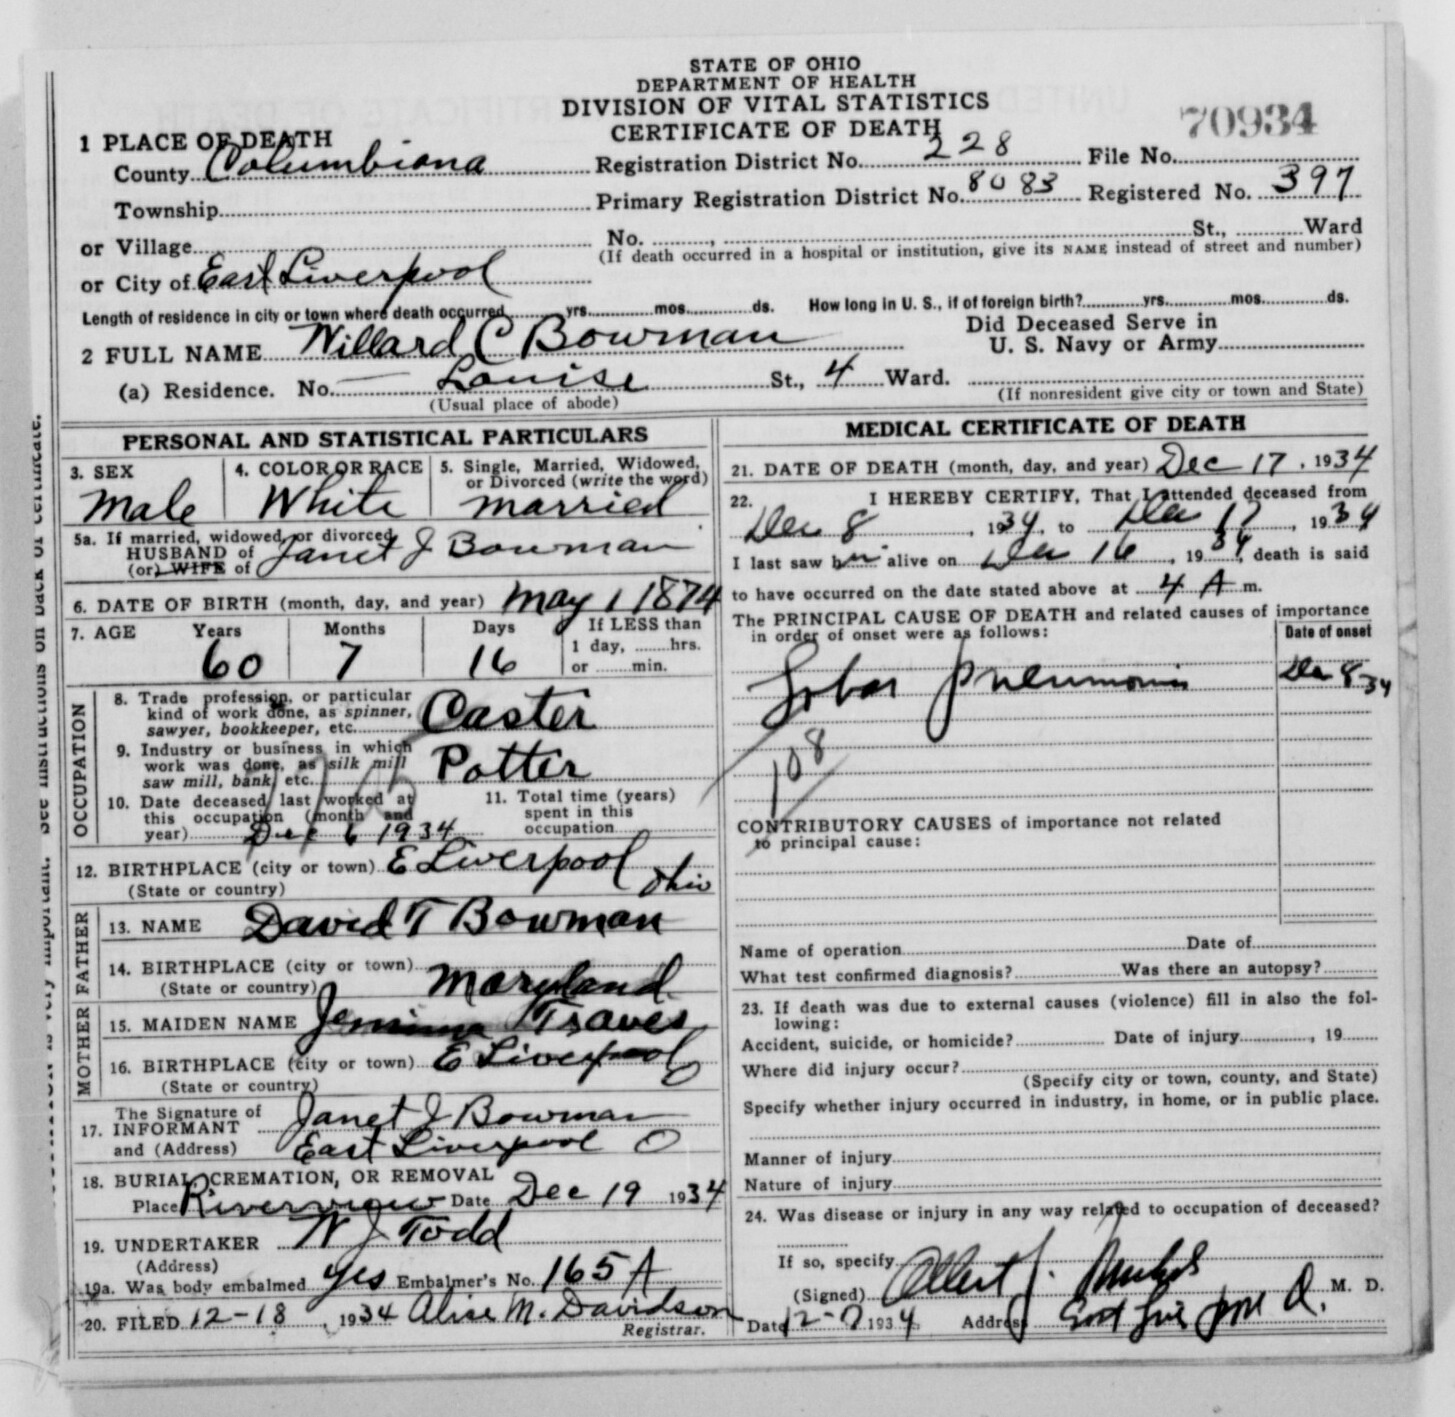 STATE OF OHIO
DEPARTMENT OF HEALTH
DIVISION OF VITAL STATISTICS
CERTIFICATE OF DEATH
70934
1 PLACE OF DEATH
County Columbiana Registration District No. 228 File No.
Township Primary Registration District No. 8083 Registered No. 397
or Village No. , St., Ward
(If death occurred in a hospital or institution, give its NAME instead of street and number)
or City of East Liverpool
Length of residence in city or town where death occurred yrs. mos. ds. How long in U. S., if of foreign birth? yrs. mos. ds.
2 FULL NAME Willard C Bowman Did Deceased Serve in U. S. Navy or Army
(a) Residence. No. — Louise St., 4 Ward.
(Usual place of abode) (If nonresident give city or town and State)
PERSONAL AND STATISTICAL PARTICULARS
3. SEX 4. COLOR OR RACE 5. Single, Married, Widowed, or Divorced (write the word)
Male White Married
5a. If married, widowed, or divorced
HUSBAND of Janet J Bowman
(or) WIFE of
6. DATE OF BIRTH (month, day, and year) May 1 1874
7. AGE Years Months Days If LESS than
60 7 16 1 day, hrs.
or min.
OCCUPATION
8. Trade profession, or particular
kind of work done, as spinner, Caster
sawyer, bookkeeper, etc.
9. Industry or business in which
work was done, as silk mill Potter
saw mill, bank, etc.
10. Date deceased last worked at 11. Total time (years)
this occupation (month and spent in this
year) Dec 6 1934 occupation
12. BIRTHPLACE (city or town) E Liverpool
(State or country) Ohio
FATHER
13. NAME David T Bowman
14. BIRTHPLACE (city or town)
(State or country) Maryland
MOTHER
15. MAIDEN NAME
16. BIRTHPLACE (city or town) E Liverpool
(State or country)
The Signature of Janet J Bowman
17. INFORMANT
and (Address) East Liverpool O
18. BURIAL, CREMATION, OR REMOVAL
Place Riverview Date Dec 19 1934
19. UNDERTAKER W J Todd
(Address)
19a. Was body embalmed Yes Embalmer's No. 165 A
20. FILED 12-18, 1934 Alise M. Davidson
Registrar.
MEDICAL CERTIFICATE OF DEATH
21. DATE OF DEATH (month, day, and year) Dec 17, 1934
22. I HEREBY CERTIFY, That I attended deceased from
Dec 8, 1934, to Dec 17, 1934
I last saw him alive on Dec 16, 1934, death is said
to have occurred on the date stated above at 4 A m.
The PRINCIPAL CAUSE OF DEATH and related causes of importance
in order of onset were as follows: Date of onset
Lobar Pneumonia Dec 8 34
108
CONTRIBUTORY CAUSES of importance not related
to principal cause:
Name of operation Date of
What test confirmed diagnosis? Was there an autopsy?
23. If death was due to external causes (violence) fill in also the fol-
lowing:
Accident, suicide, or homicide? Date of injury , 19
Where did injury occur?
(Specify city or town, county, and State)
Specify whether injury occurred in industry, in home, or in public place.
Manner of injury
Nature of injury
24. Was disease or injury in any way related to occupation of deceased?
If so, specify
(Signed) Albert J. M. D.
Date 1934 Address East Liverpool O.